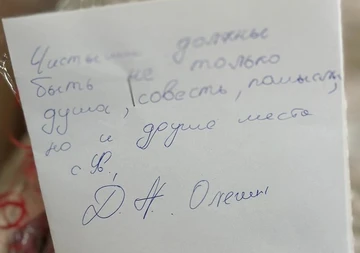 Чистыми должны
быть не только
душа, совесть, помыслы,
но и другие места
с
Д. Н. Олешин